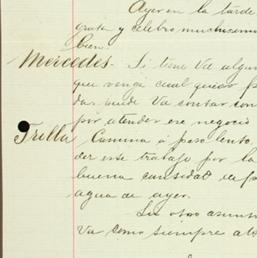 Ayer en la tarde
grata y celebro muchisimo
bien.
Mercedes- Si tiene Vd algun
que venga cual quier p
dar, puede Vd contar con
por atender ese negocio
Trilla, Camina á paso lento
der este trabajo por la
buena cantidad de
agua de ayer.
Sus otros asuntos
Va como siempre at